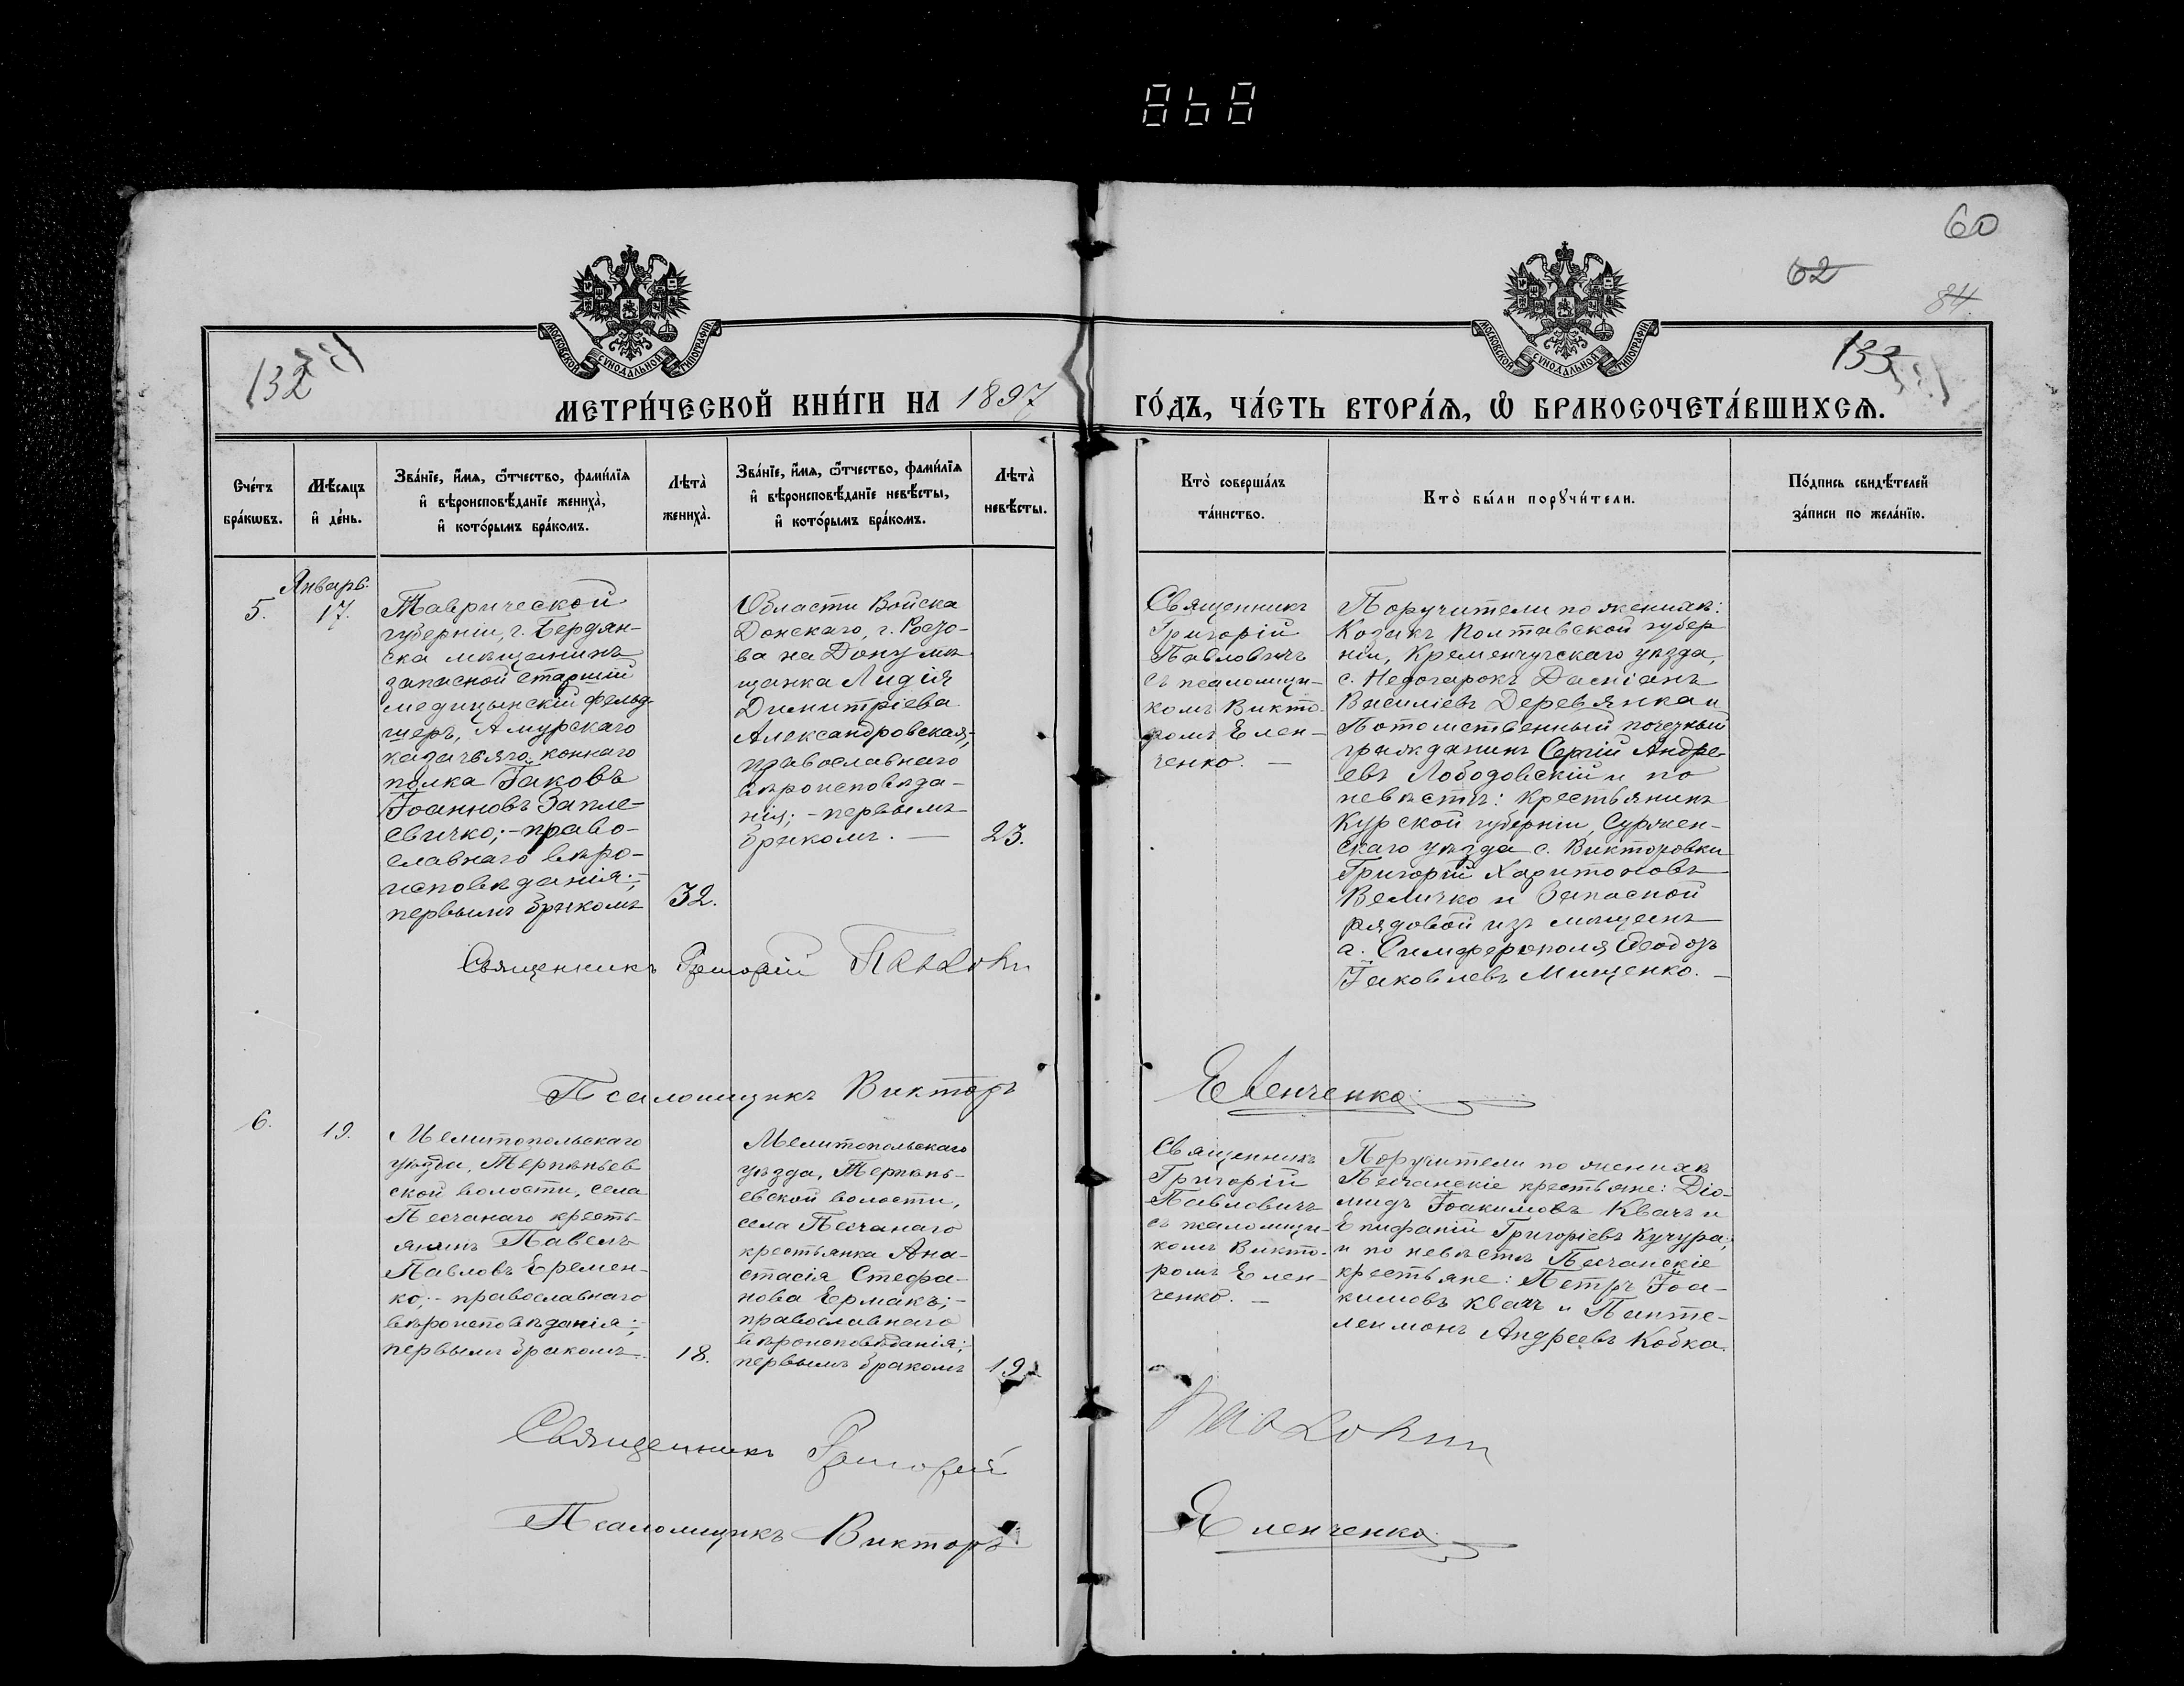 868
60
62
84
132
133
МОСКОВСКОЙ СѴНОДАЛЬНОЙ ТИПОГРАФІИ
МОСКОВСКОЙ СѴНОДАЛЬНОЙ ТИПОГРАФІИ
МЕТРИ́ЧЕСКОЙ КНИ́ГИ НА 1897 ГО́ДЪ, ЧА́СТЬ ВТОРА́Я, Ѽ БРАКОСОЧЕТА́ВШИХСЯ.
Сче́тъ
бра́кѡвъ.
Мѣ́сяцъ
и҆ де́нь.
Зва́нїе, и҆́мя, ѻ҆́тчество, фами́лїя
и҆ вѣроисповѣ́данїе жениха̀,
и҆ кото́рымъ бра́комъ.
Лѣ́та̀
жениха̀.
Зва́нїе, и҆́мя, ѻ҆́тчество, фами́лїя
и҆ вѣроисповѣ́данїе невѣ́сты,
и҆ кото́рымъ бра́комъ.
Лѣ́та̀
невѣ́сты.
Кто̀ соверша́лъ
та́инство.
Кто̀ бы́ли порꙋчи́тели.
По́дпись свидѣ́телей
за́писи по жела́нїю.
Январь.
5.
17.
Таврической
губерніи, г. Бердян-
ска мѣщанинъ
запасной старшій
медицынскій фельд-
шеръ, Амурскаго
казачьяго коннаго
полка Іаковъ
Іоанновъ Запле-
свичко;- право-
славнаго вѣро-
исповѣданія;-
первымъ бракомъ
32.
Области Войска
Донскаго, г. Росто-
ва на Дону мѣ-
щанка Лидія
Димитріева
Александровская;
православнаго
вѣроисповѣда-
нія; - первымъ
бракомъ. —
23.
Священникъ
Григорій
Павловичъ
съ псаломщи-
комъ Викто-
ромъ Елен-
ченко. —
Поручители по женихѣ:
Козакъ Полтавской губер
ніи, Кременчугскаго уѣзда,
с. Недогарокъ Даміанъ
Василіевъ Деревянка и
Потомственный почетный
гражданинъ Сергій Андре-
евъ Лободовскій и по
невѣстѣ: крестьянинъ
Курской губерніи, Суржен-
скаго уѣзда с. Викторовки
Григорій Харитоновъ
Величко и Запасной
рядовой изъ мѣщанъ
г. Симферополя Ѳеодоръ
Іаковлевъ Мищенко. —
Священникъ Григорій Павлови
Псаломщикъ Викторъ
Еленченко
6.
19.
Мелитопольскаго
уѣзда, Терпѣньев
ской волости, села
Песчанаго кресть-
янинъ Павелъ
Павловъ Еремен-
ко; - православнаго
вѣроисповѣданія;-
первымъ бракомъ
18.
Мелитопольскаго
уѣзда, Терпѣнь-
евской волости,
села Песчанаго
крестьянка Ана-
стасія Стефа-
нова Ермакъ;-
православнаго
вѣроисповѣданія;-
первымъ бракомъ
19.
Священникъ
Григорій
Павловичъ
съ псаломщи-
комъ Викто-
ромъ Елен-
ченко. —
Поручители по женихѣ
Песчанскіе крестьяне: Діо-
мидъ Іоакимовъ Квачъ и
Епифаній Григоріевъ Кучура;
и по невѣстѣ Песчанскіе
крестьяне: Петръ Іоа-
кимовъ Квачъ и Панте-
леимонъ Андреевъ Кобка.
Священникъ Григорій
Псаломщикъ Викторъ
Еленченко